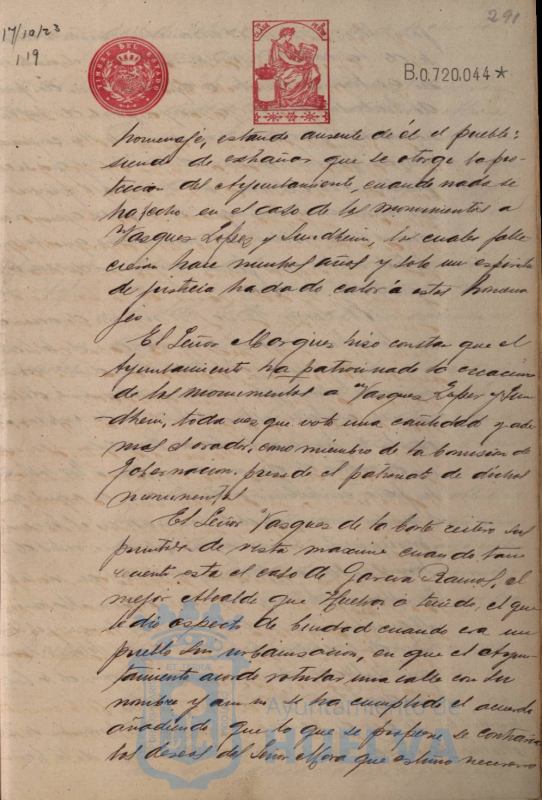 291
17/10/23
119
TIMBRE DEL ESTADO
B.0.720.044*
homenaje, estando ausente de él el pueblo;
siendo de extrañar que se otorge la pro-
teccion del Ayuntamiento, cuando nada se
ha hecho en el caso de los monumentos a
Vasquez Lopez y Sundheim, los cuales falle-
cieron hace muchos años y solo un espiritu
de justicia ha dado calor a estos homena-
jes
El Señor Marquez hizo constar que el
Ayuntamiento ha patrocinado la creacion
de los monumentos a Vasquez Lopez y Sun-
dheim, toda vez que votó una cantidad y ade-
mas el orador, como miembro de la Comision de
Gobernacion, preside el patronato de dichos
monumentos
El Señor Vasquez de la Corte reitera sus
puntos de vista maxime cuando tan
reciente esta el caso de Garcia Ramos, el
mejor Alcalde que Huelva a tenido, el que
le dio aspecto de ciudad cuando era un
pueblo sin urbanizacion, en que el Ayun-
tamiento acordó rotular una calle con su
nombre y aun no se ha cumplido el acuerdo
añadiendo que lo que se propone es contrario
los deseos del Señor Mora que estimó necesario
Ayuntamiento de
HUELVA